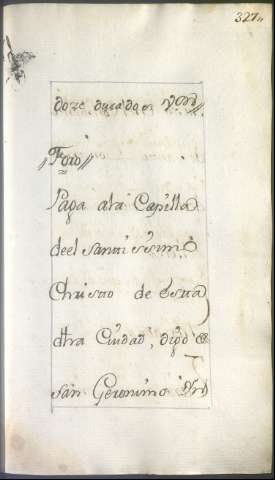 327,,
doze ducados
,,Foro,,
Paga ala Capilla
deel Santissimo
Christo de Esta
dha Ciudad, digo
San Geronimo